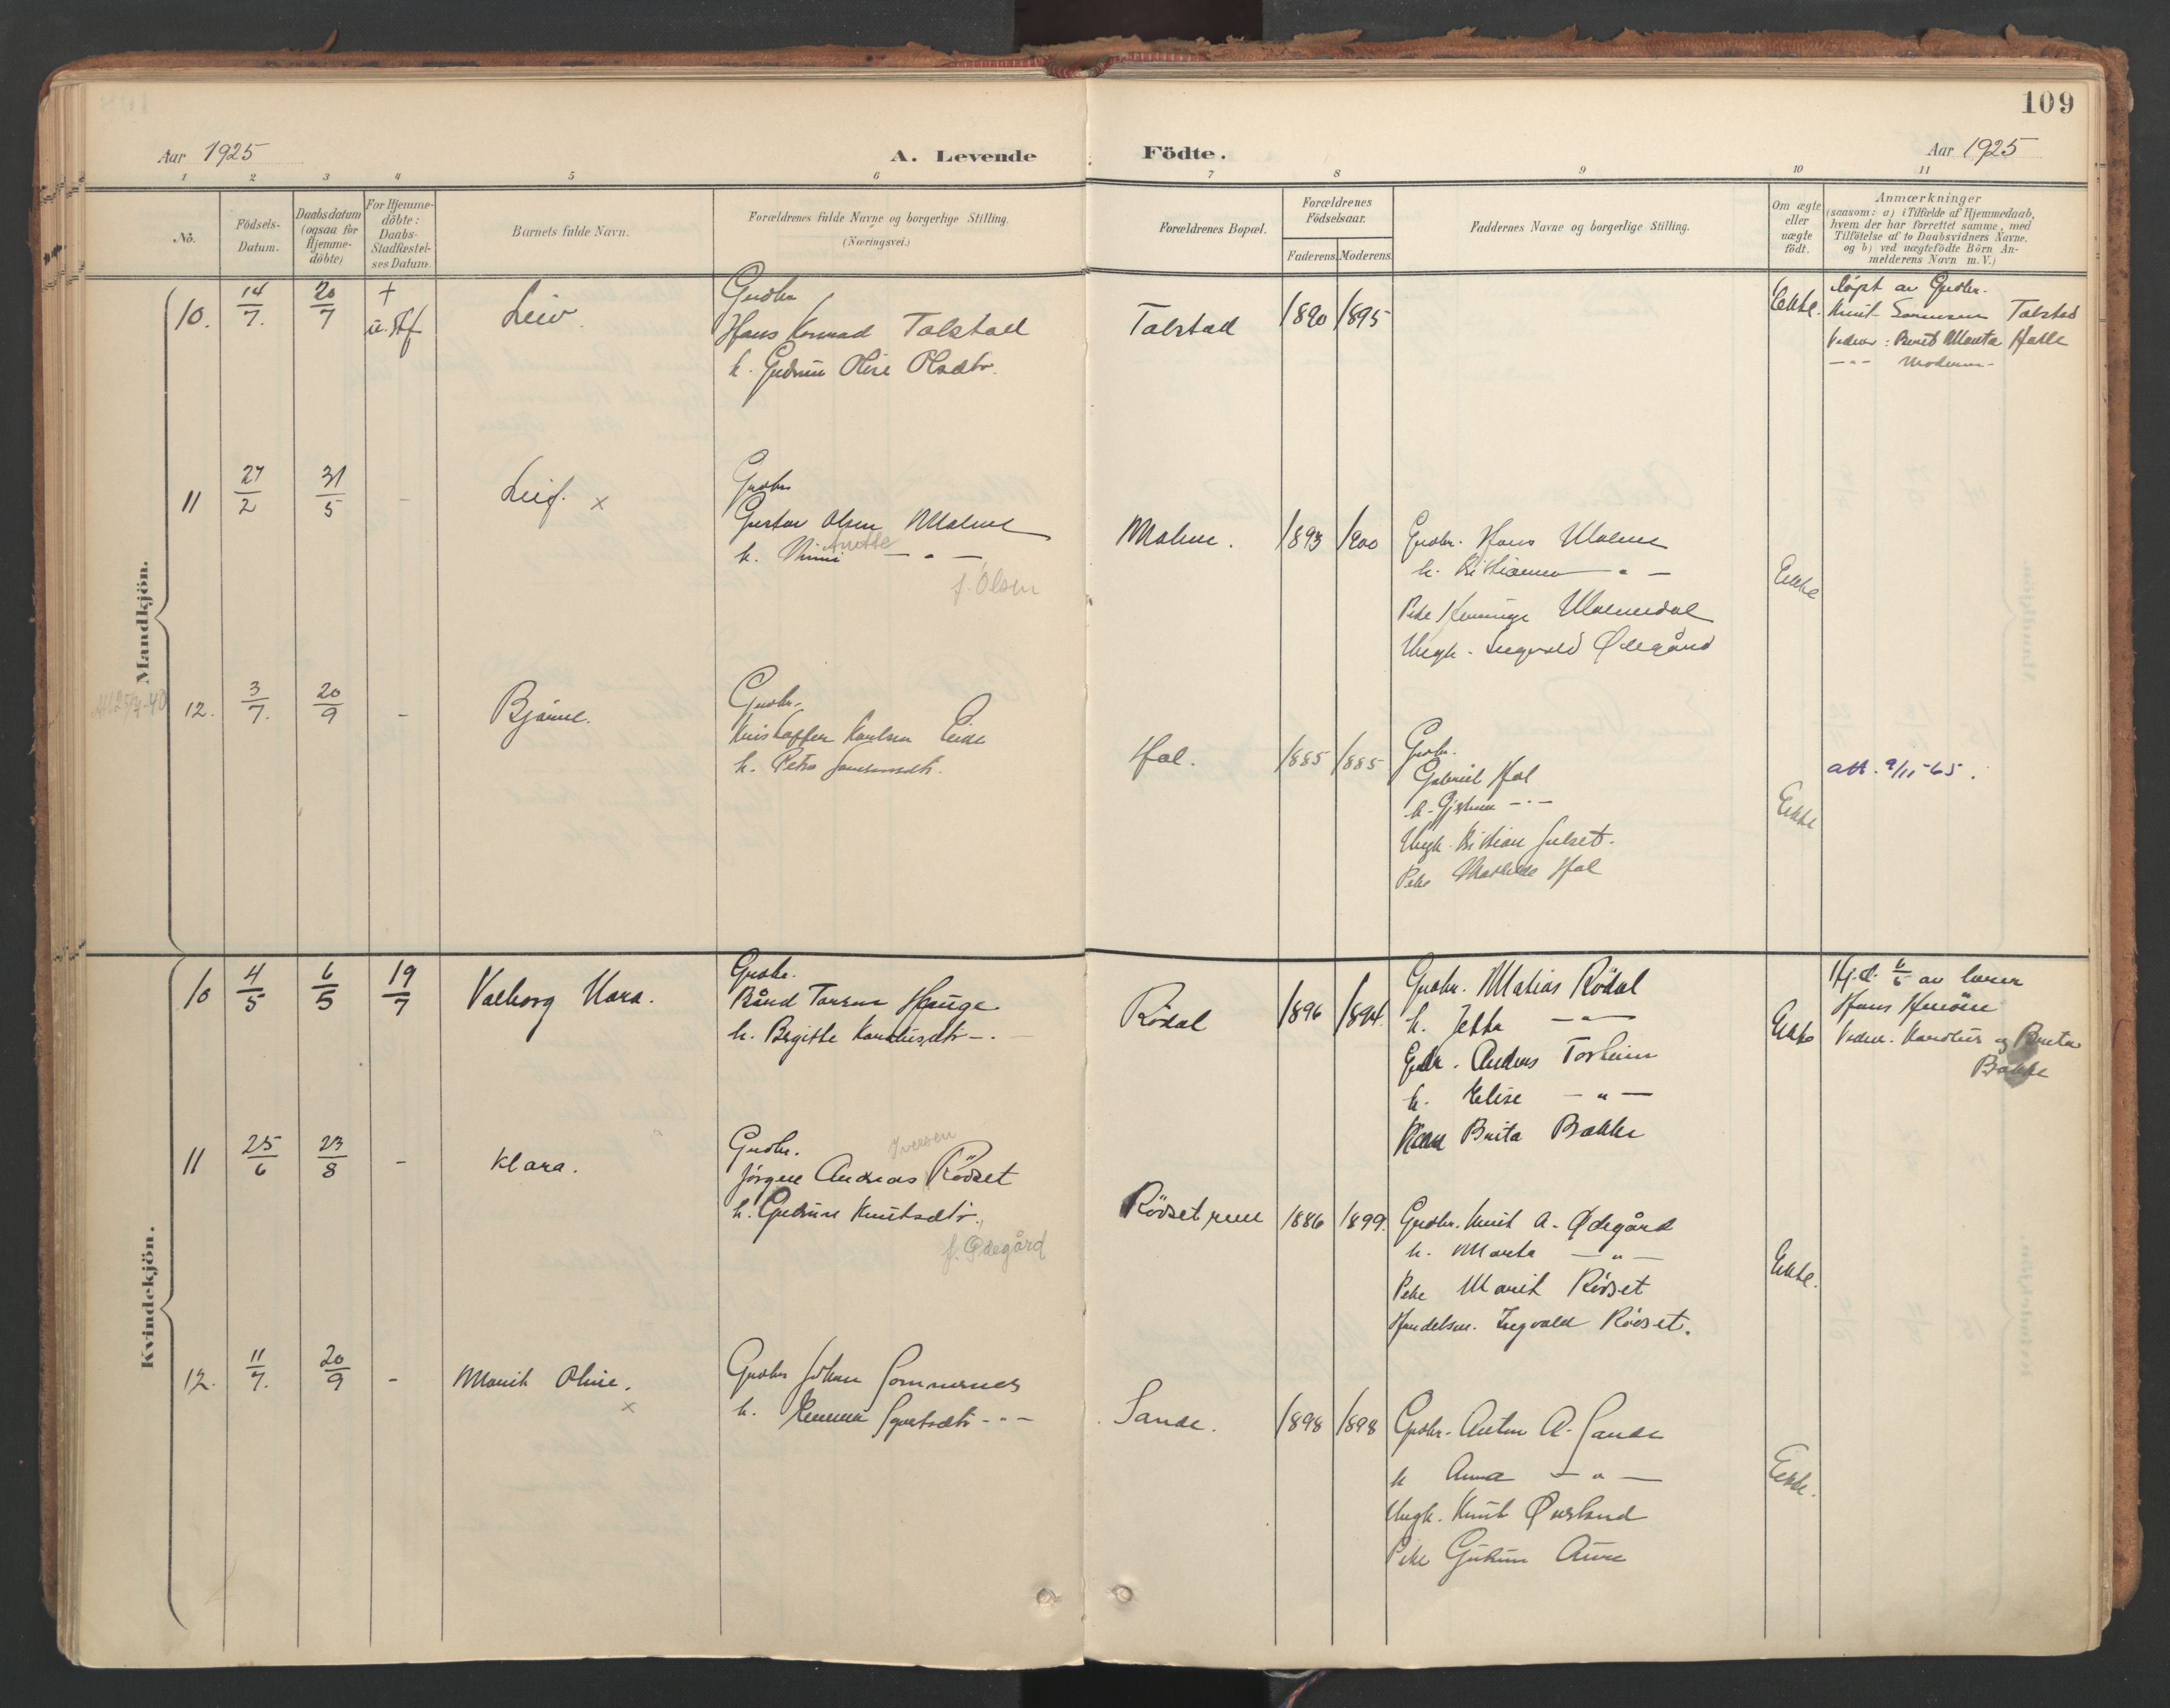 109
Aar 1925
A. Levende Födte.
Aar 1925
1 2 3 4 5 6 7 8 9 10 11
No.
Födsels-
Datum.
Daabsdatum
(ogsaa for
Hjemme-
döbte)
For Hjemme-
döbte:
Daabs-
Stadfæstel-
ses Datum.
Barnets fulde Navn.
Forældrenes fulde Navne og borgerlige Stilling.
(Næringsvei.)
Forældrenes Bopæl.
Forældrenes
Födselsaar.
Faderens. Moderens.
Faddernes Navne og borgerlige Stilling.
Om ægte
eller
uægte
födt.
Anmærkninger
(saasom: a) i Tilfælde af Hjemmedaab,
hvem der har forrettet samme, med
Tilföielse af to Daabsvidners Navne,
og b) ved uægtefödte Börn An-
melderens Navn m. V.)
Mandkjön.
10. 14/7. 20/7 + u. Stf Leiv
Gardbr
Hans Konrad Talstad
h. Gudrun Oline Olsdtr.
Talstad 1890 1895
Ekte.
döpt av Gardbr.
Knut Talstad
Vidner: Berit Marta Halle
-"- Moderen-
11 27/2 31/5 - Leif. x
Gardbr
Gustav Olsen Malme
h. Mimi Anette - " -
f. Olsen
Malme. 1893 1900
Gardbr. Hans Malme
h. Kristianna - " -
Pike Malmedal
Ungk. Ingvald Ødegård
Ekte
12. 3/7. 20/9 - Bjarne.
Gardbr.
Kristoffer Karlsen Eide
h. Petra
Hol. 1885 1885
Gardbr.
Gabriel Hol
h. - " -
Ungk. Kristian Julset.
Pike Mathilde Hol
Ekte
att. 9/11-65.
Kvindekjön.
10 4/5 6/5 19/7 Valborg Mara.
Gardbr.
Bård Hauge
h. Birgitte - .
Rödal 1896 1894.
Gardbr. Matias Rödal
h. Jetta - " -
Gdbr. Anders Torheim
h. Elise - " -
Brita Bakke
Ekte
Hj.d. 6/5 av lærer
Hans
Vidne. Karolius og Brita
Bakke
11 25/6 23/8 - Klara.
Gardbr.
Iversen
Jörgen Andreas Rödset
h. Gudrun Knutsdtr.
f. Ødegård
Rödset 1886 1899.
Gardbr. Knut A. Ødegård
h. Marta - " -
Pike Marit Rödset
Handelsm. Ingvald Rödset.
Ekte.
12. 11/7. 20/9 - Marit Oline. x
Gardbr Johan Sommernes
h. Emma Sjurtsdtr - " -
Sande. 1898 1898
Gardbr. Anton A. Sande
h Anna - " -
Ungk. Knut
Pike Gudrun Aure
Ekte.